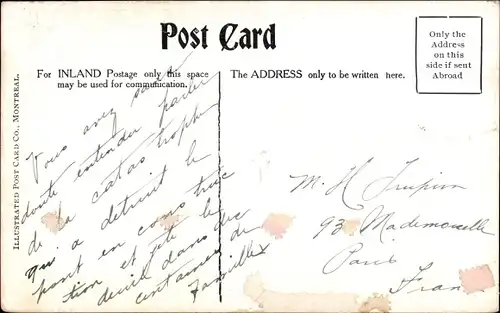 Post Card
For INLAND Postage only this space
may be used for communication.
The ADDRESS only to be written here.
Only the
Address
on this
side if sent
Abroad
ILLUSTRATED POST CARD CO., MONTREAL.
Vous avez sans
doute entendu parler
de la catastrophe
qui a détruit le
pont en construc
tion et jeté le
deuil dans des
centaines de
familles
M. H.
93 Mademoiselle
Paris
Fran